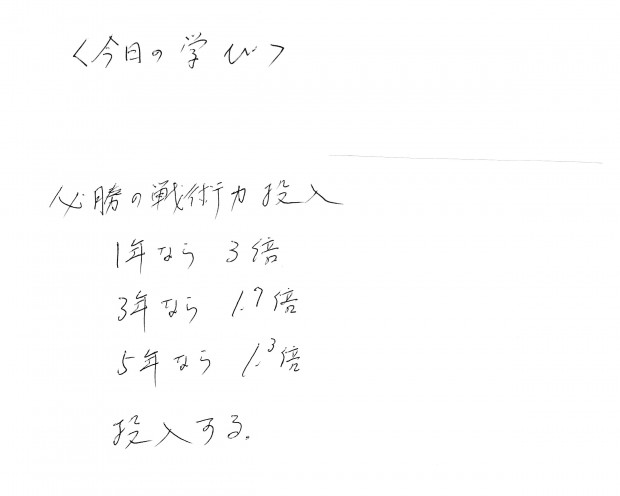 <今日の学び>
必勝の戦術力投入
1年なら 3倍
3年なら 1.7倍
5年なら 1.3倍
投入する。